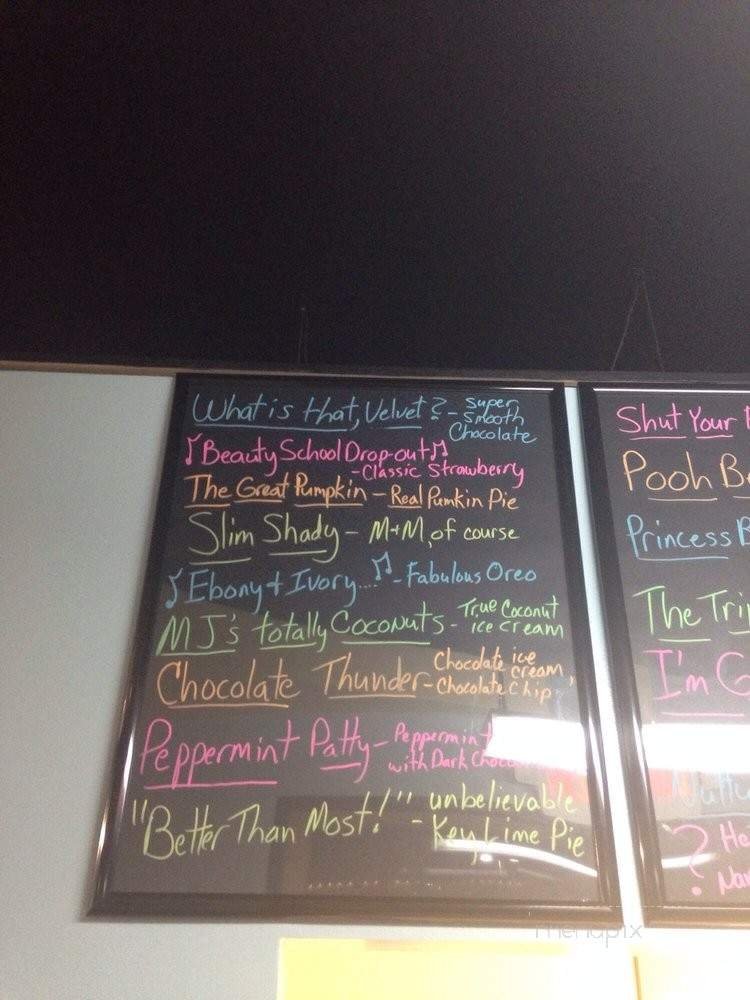 What is that, Velvet? - Super
Smooth
Chocolate
♪Beauty School Drop-out♫
- Classic Strawberry
The Great Pumpkin - Real Pumkin Pie
Slim Shady - M+M, of course
♪Ebony + Ivory....♫ - Fabulous Oreo
MJ's totally Coconuts - True Coconut
ice cream
Chocolate Thunder - Chocolate ice
cream,
chocolate chip
Peppermint Patty - Peppermint
with Dark
"Better Than Most!" - unbelievable
Key Lime Pie
Shut Your
Pooh
Princess
The
I'm
?